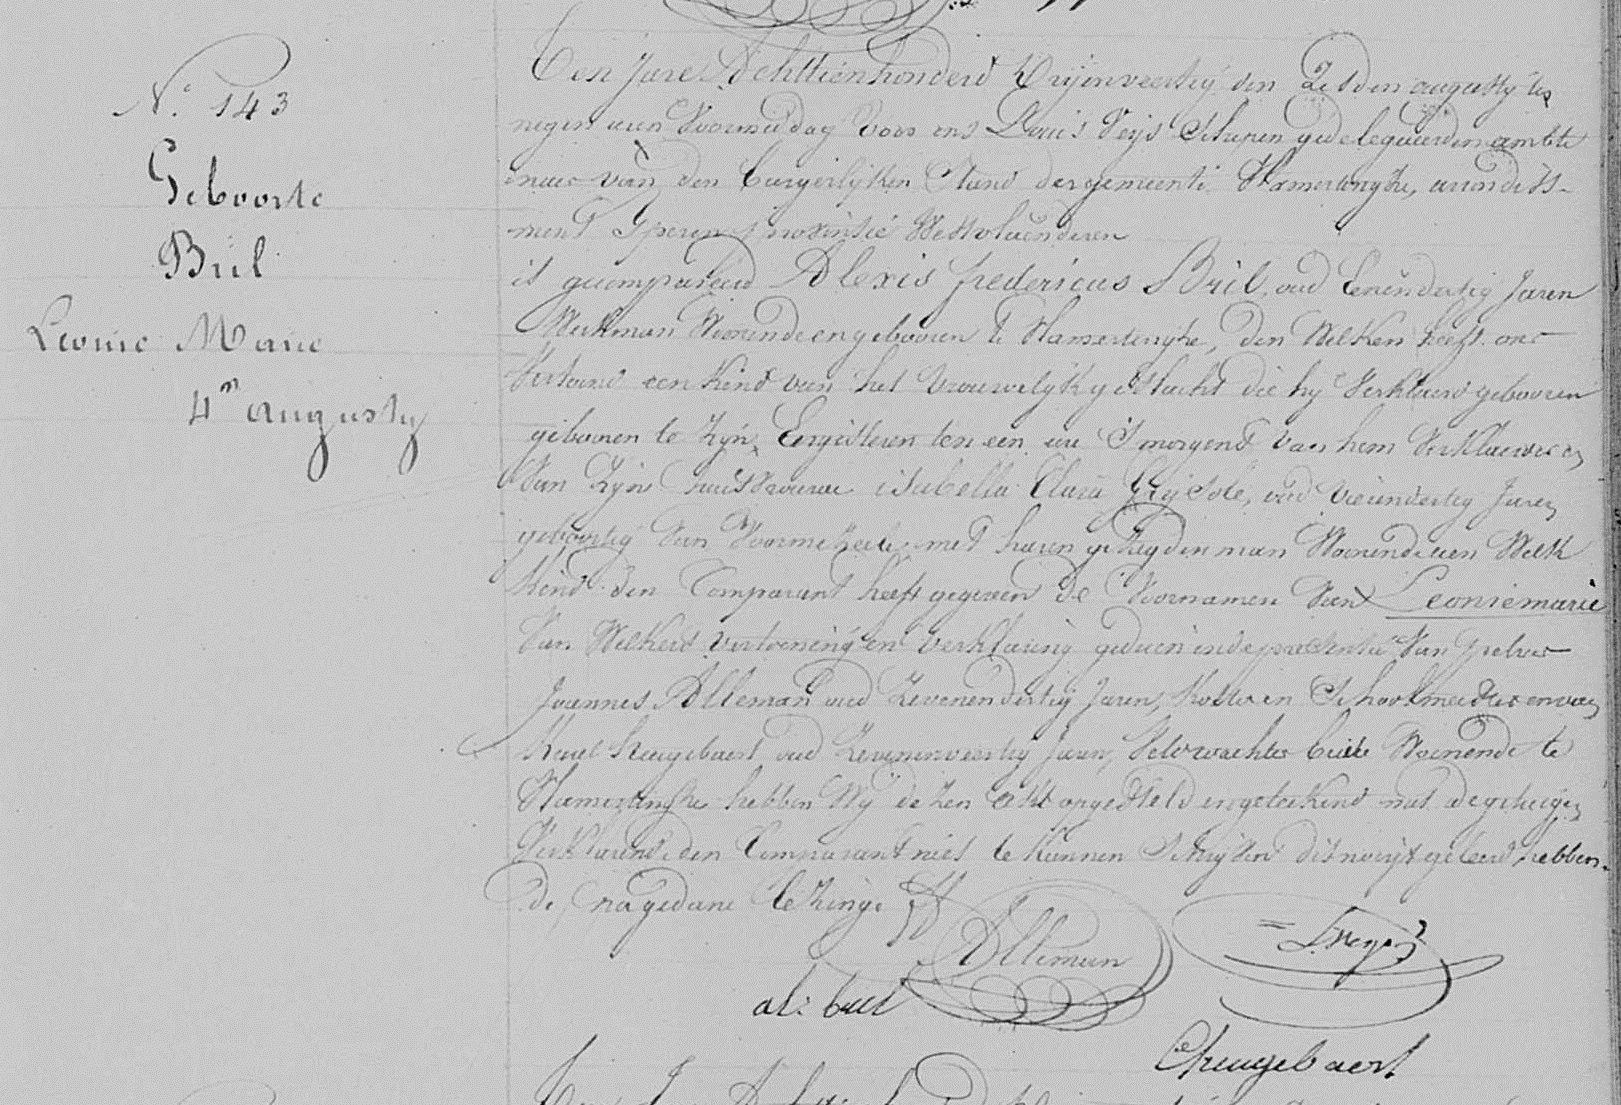 N.º 143
Geboorte
Bril
Leonie Marie
4ⁿ augusty
Ten Jare Achttienhonderd Drijenveertig den Zesden augusty ten
negen uren Voormiddag voor ons Louis Veys Schepen gedelegueerden ambte
naer van den burgerlyken Stand der gemeente Vlamertinghe, arrondisse-
ment Yperen provintie Westvlaenderen
is gecompareerd Alexis fredericus Bril, oud Eenendertig Jaren
Werkman Woonende en gebooren te Vlamertinghe, den Welken heeft ons
Vertoond een kind van het Vrouwelyk geslacht die hy Verklaerd gebooren
gebooren te zyn, Eergisteren ten een ure Smorgens van hem Verklaerder en
Van Zyne huisvrouwe isabella Clara, oud Vierendertig Jaren
geboortig Van Voormezeele met haren gezegden man Woonende een Welk
kind den Comparant heeft gegeven de Voornamen Van Leoniemarie
Van Welkers vertooning en verklaring gedaen in de presentie Van
Joannes Alleman oud Zevenendertig Jaren, Koster en Schoolmeester en van
Karel heugebaert oud Zevenenveertig Jaren, Veldwachter beide Woonende te
Vlamertinghe hebben Wy dezen akt opgesteld en geteekend met de getuigen
Verklarende den Comparant niet te kunnen Schryven dit nooyt geleerd hebben-
de, na gedane lezinge
Alleman
L Veys
al: bril
C heugebaert